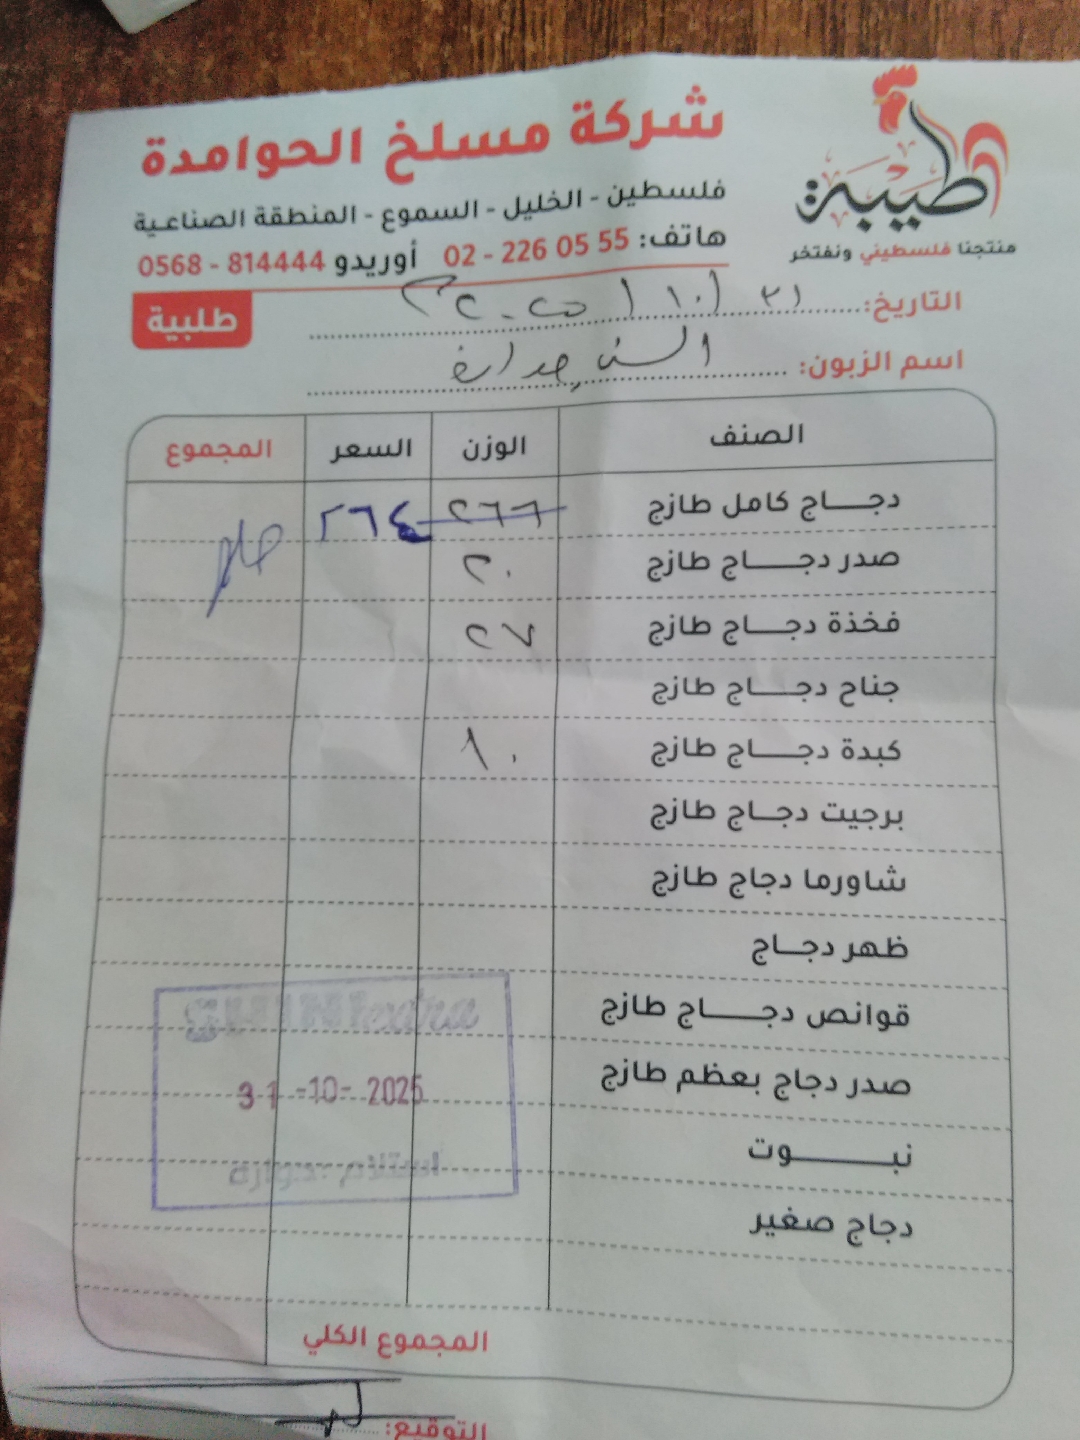 طيبة
منتجنا فلسطيني ونفتخر
شركة مسلخ الحوامدة
فلسطين - الخليل - السموع - المنطقة الصناعية
هاتف: 02 - 226 05 55 أوريدو 0568 - 814444
طلبية
التاريخ: ٣١ / ١٠ / ٢٠٢٥
اسم الزبون:
الصنف الوزن السعر المجموع
دجــاج كامل طازج ٢٦٦ ٢٦٤
صدر دجــاج طازج ٢٠
فخذة دجــاج طازج ٢٧
جناح دجــاج طازج
كبدة دجــاج طازج ١٠
برجيت دجــاج طازج
شاورما دجاج طازج
ظهر دجــاج
قوانص دجــاج طازج
صدر دجاج بعظم طازج
نبــــوت
دجاج صغير
31 -10- 2025
استلام
المجموع الكلي
التوقيع: